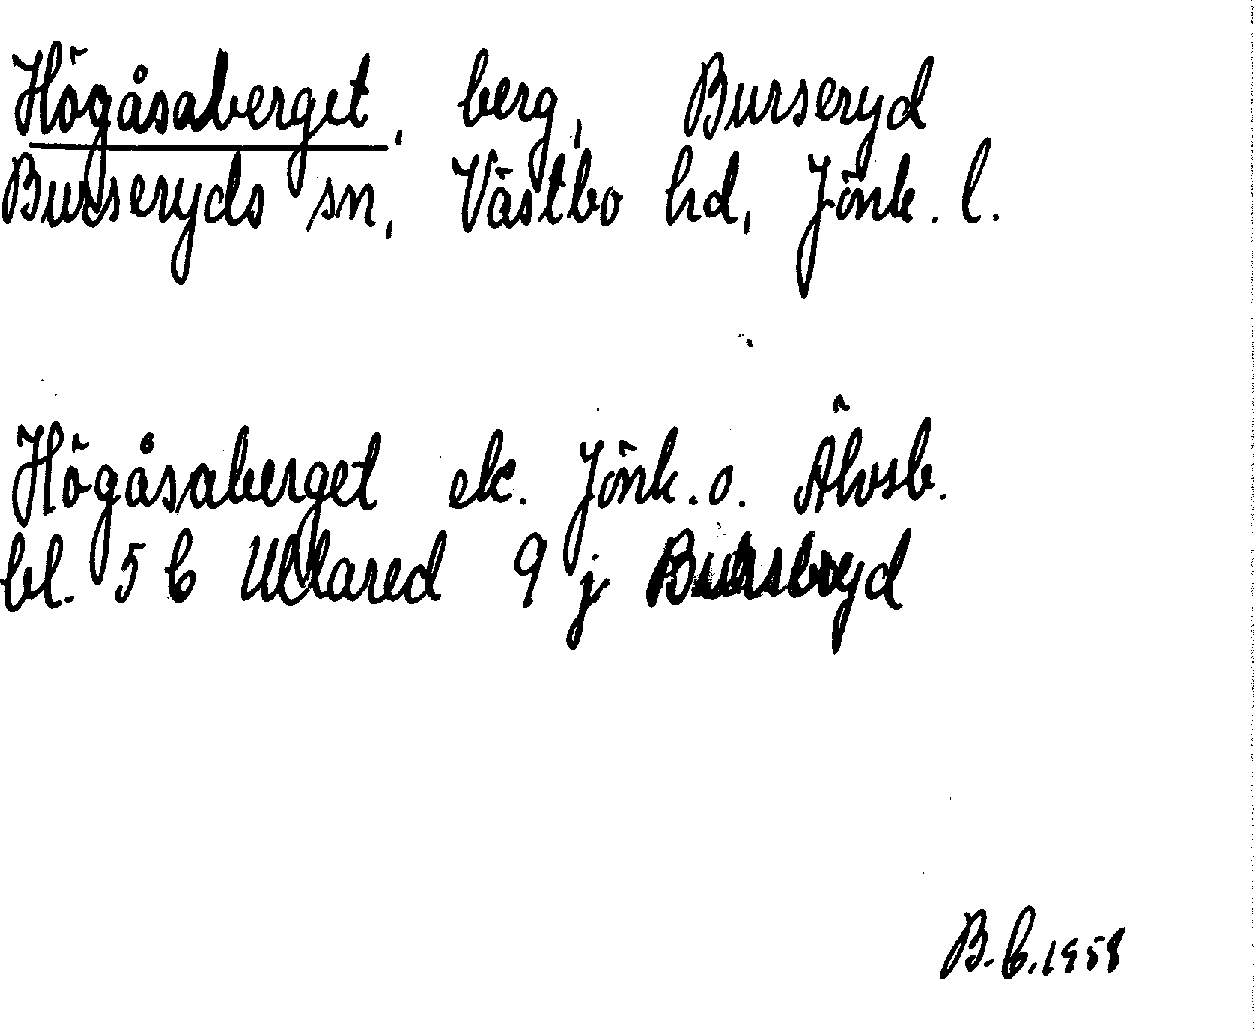 Högåsaberget, berg, Burseryd
Burseryds sn, Västbo hd, Jönk. l.
Högåsaberget ek. Jönk. o. Älvsb.
bl. 5 C Ullared 9 j Burseryd
B.C. 1958